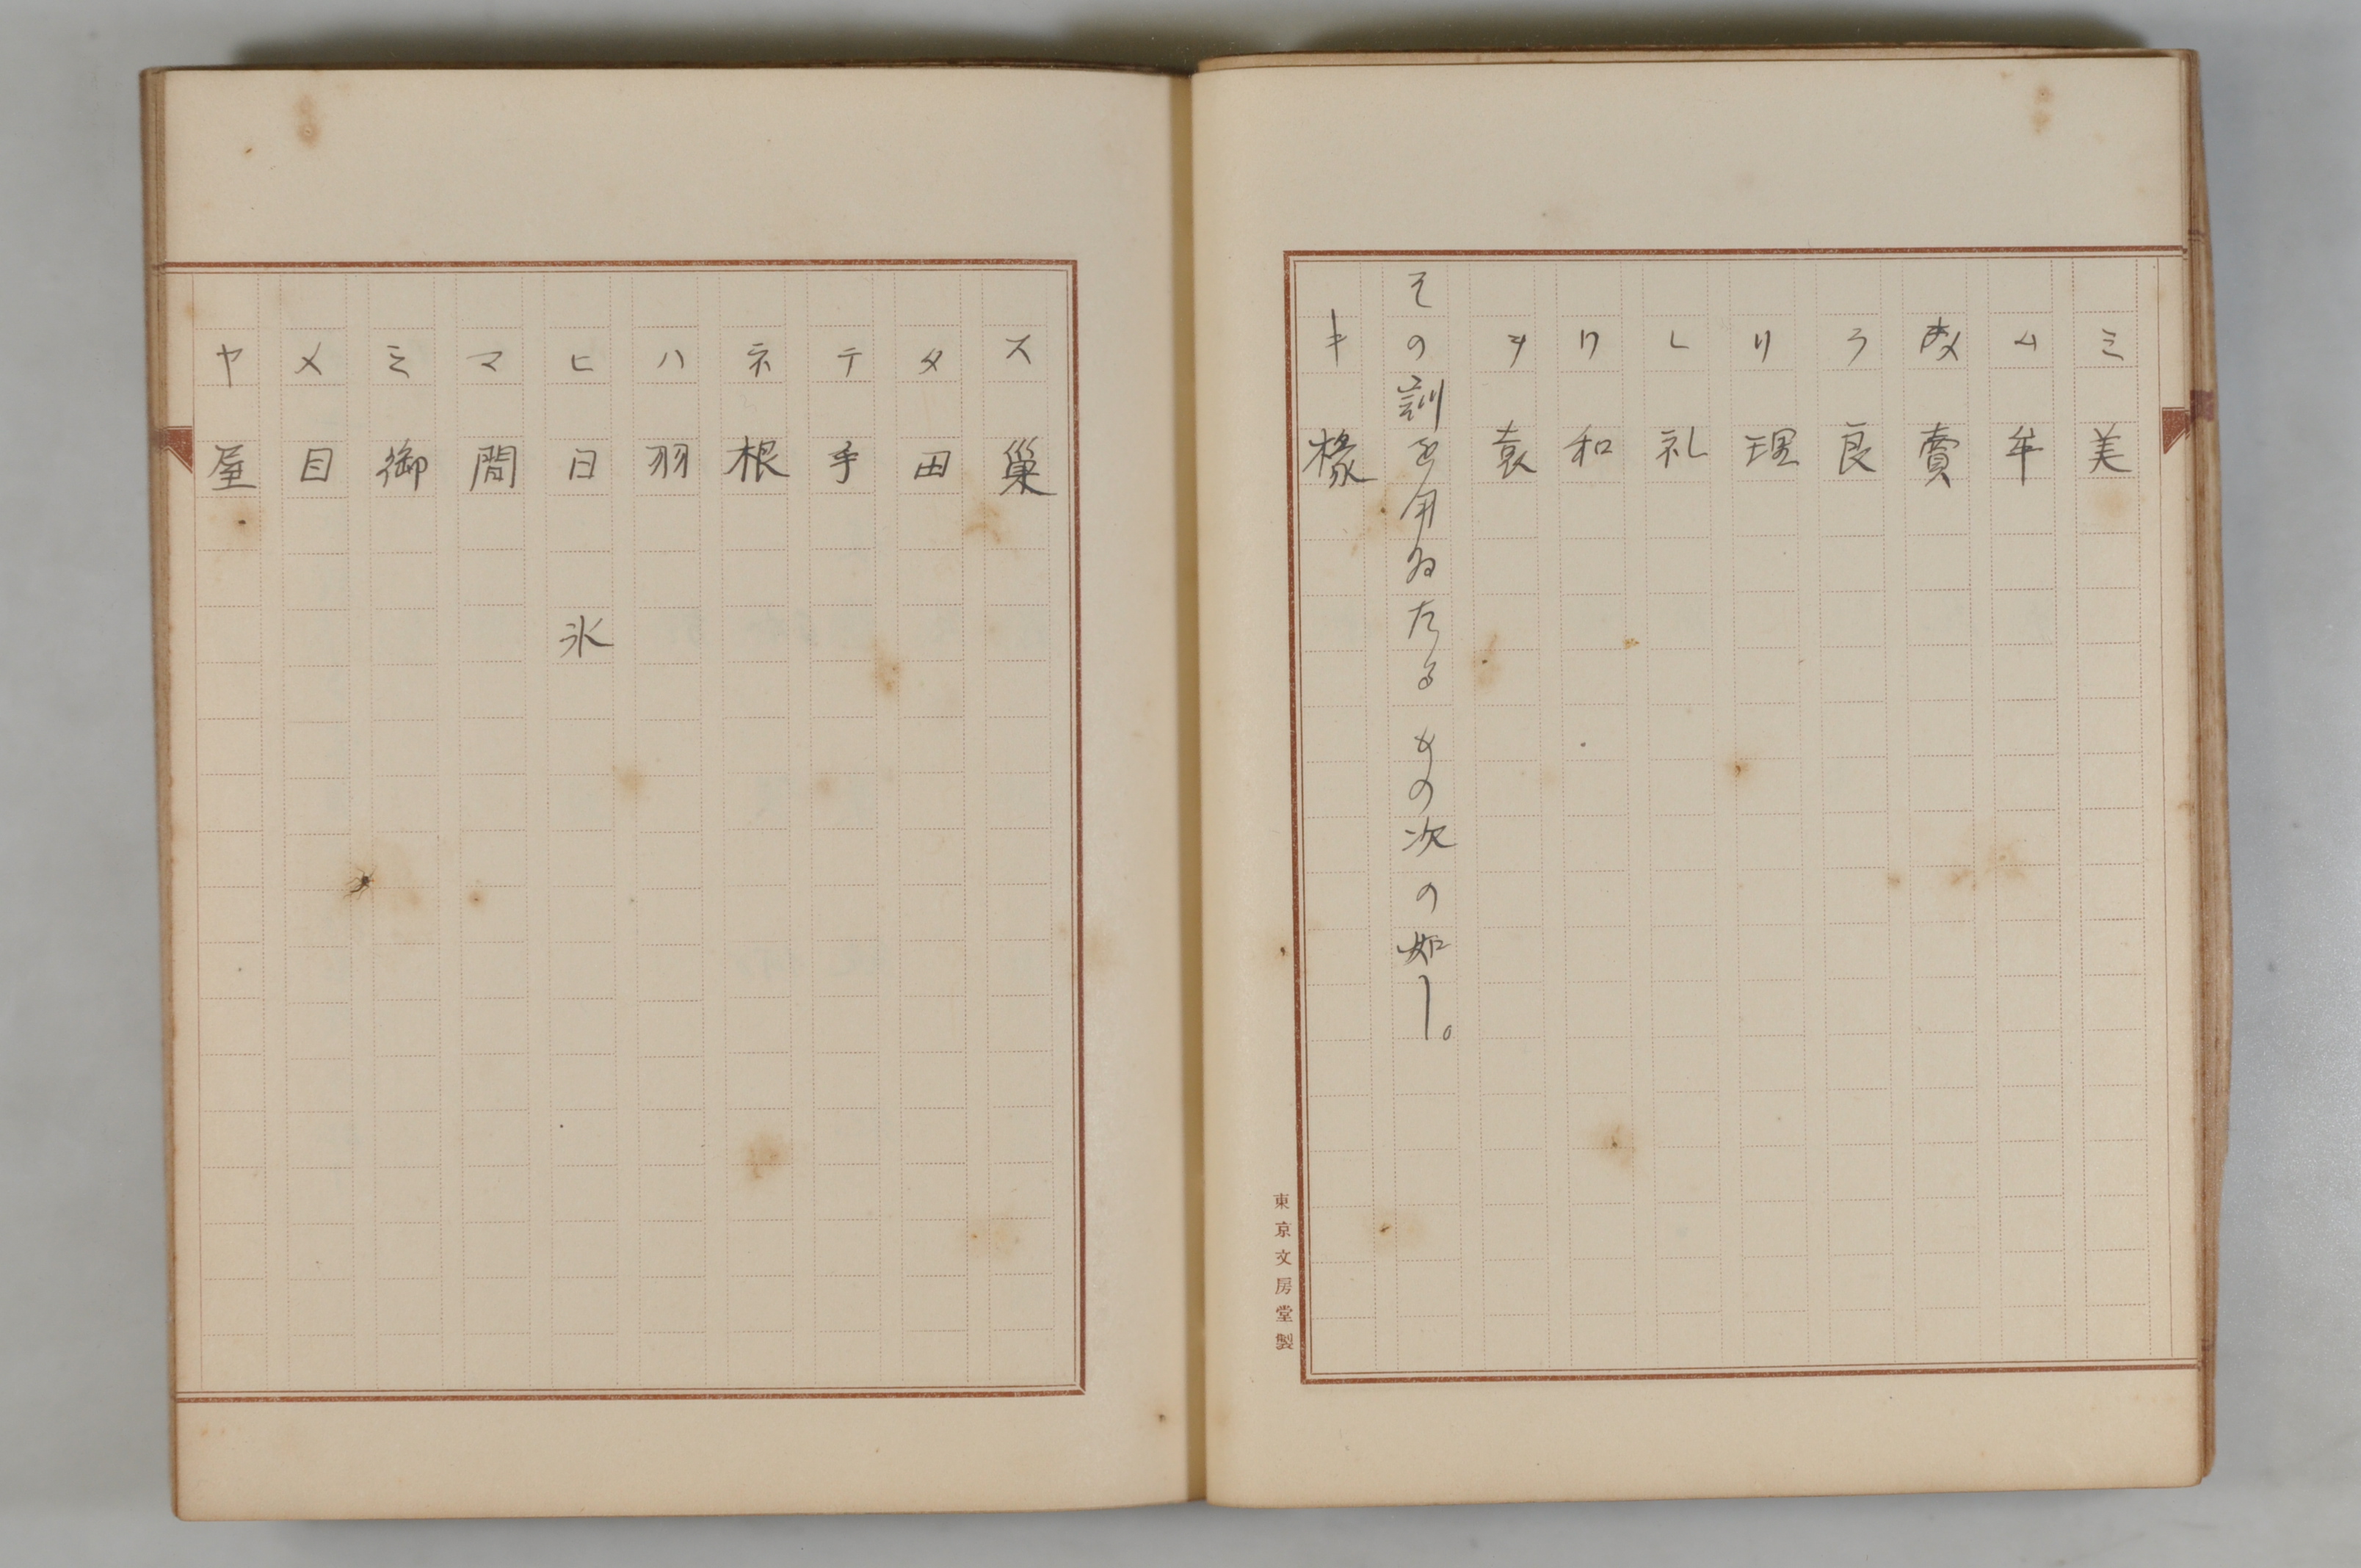 ミ 美
ム 牟
メ 賣
ラ 良
リ 理
レ 礼
ワ 和
ヲ 袁
その訓を用ゐたるもの次の如し。
キ 椽
東京文房堂製
ス 巣
タ 田
テ 手
ネ 根
ハ 羽
ヒ 日 氷
マ 間
ミ 御
メ 目
ヤ 屋